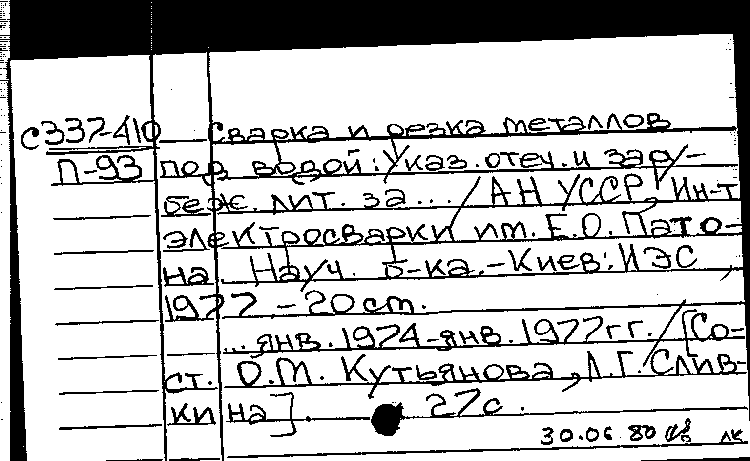 С337-410 Сварка и резка металлов
П-93 под водой: Указ. отеч. и зару-
беж. лит. за... / АН УССР, Ин-т
электросварки им. Е.О. Пато-
на. Науч. б-ка. - Киев: ИЭС,
1977. - 20 см.
... янв. 1974-янв. 1977 гг. / [Со-
ст. О.М. Кутьянова, Л.Г. Слив-
кина]. 27с.
30.06.80 лк